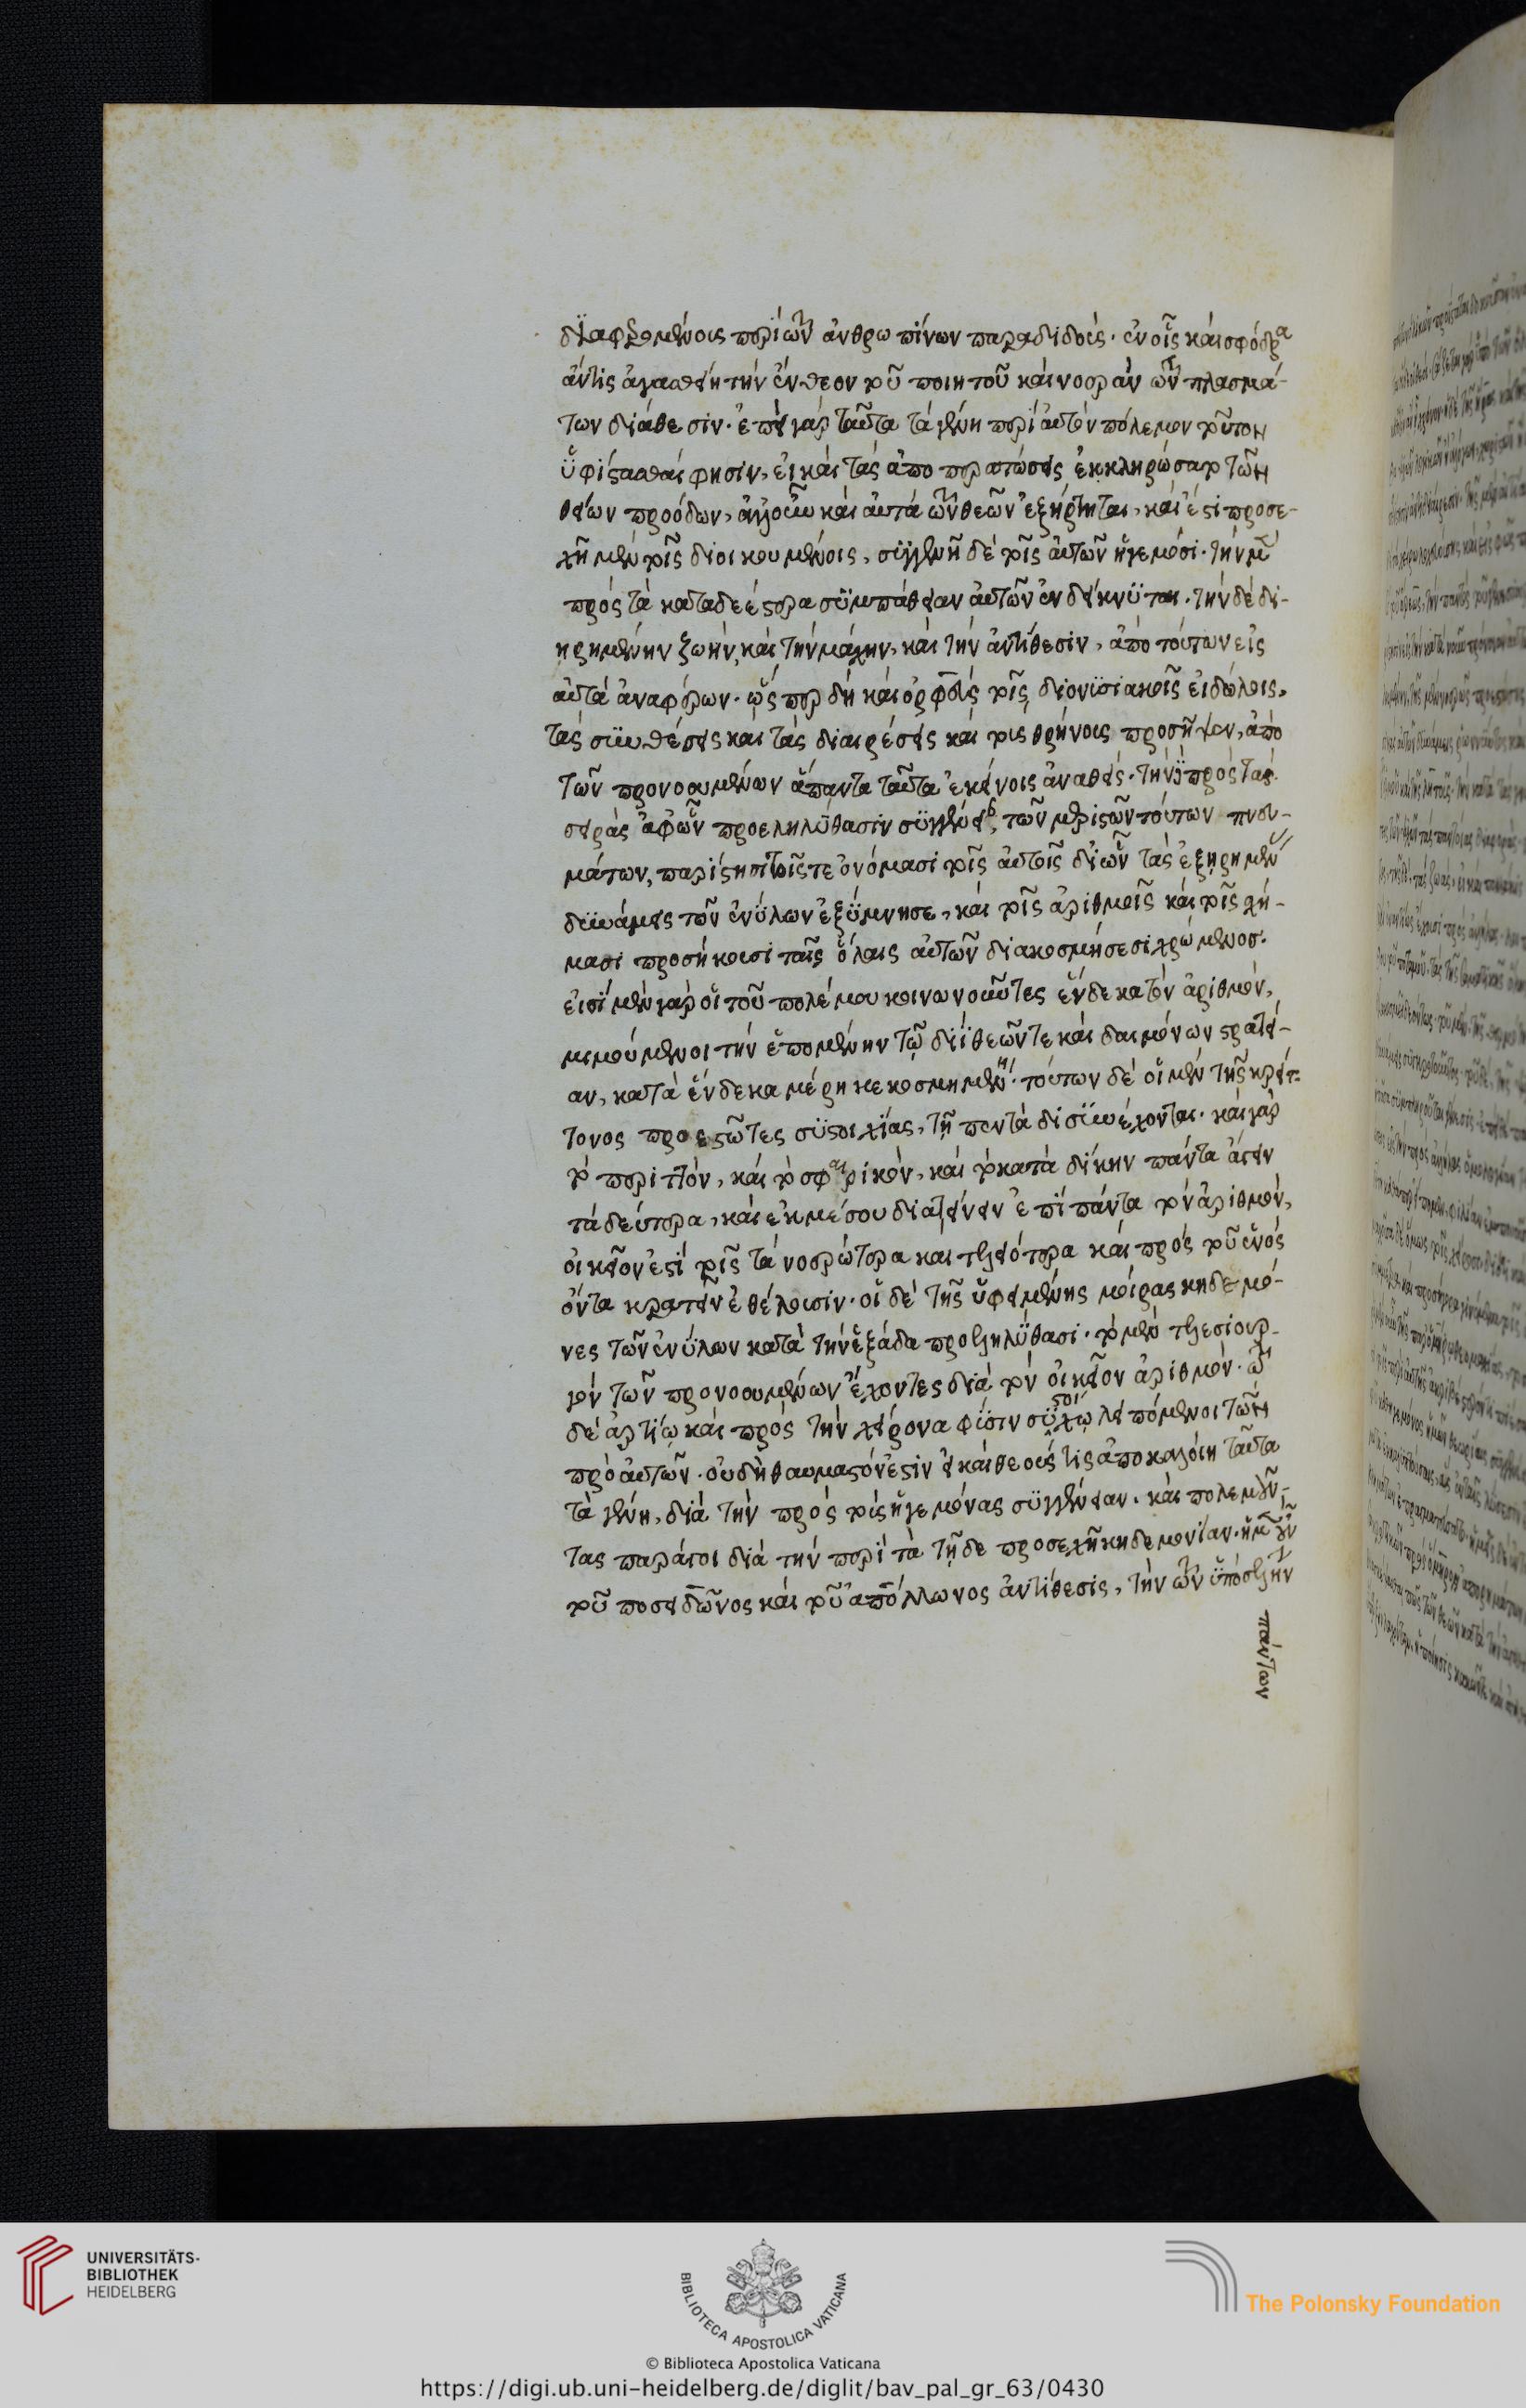 διαφερομένοις περὶ τῶν ἀνθρωπίνων παραδιδούς. ἐν οἷς καὶ σφόδρα
ἄν τις ἀγασθείη τὴν ἔνθεον τοῦ ποιητοῦ καὶ νοερὰν τῶν πλασμά-
των διάθεσιν. ἐπεὶ γὰρ ταῦτα τὰ γένη περὶ αὐτὸν πόλεμον τοῦτον
ὑφίστασθαί φησιν, εἰ καὶ τὰς ἀποπερατώσεις ἐκκληρώσατο τῶν
θείων προόδων, ἀλλ' οὖν καὶ αὐτὰ τῶν θεῶν ἐξήρτηται, καὶ ἔστι προσε-
χῆ μὲν τοῖς διοικουμένοις, συγγενῆ δὲ τοῖς αὐτῶν ἡγεμόσι. τὴν μὲν
πρὸς τὰ καταδεέστερα συμπάθειαν αὐτῶν ἐνδείκνυται. τὴν δὲ δι-
ῃρημένην ζωὴν, καὶ τὴν μάχην, καὶ τὴν ἀντίθεσιν, ἀπὸ τούτων εἰς
αὐτὰ ἀναφέρων. ὥσπερ δὴ καὶ ὀρφεὺς τοῖς διονυσιακοῖς εἰδώλοις,
τὰς συνθέσεις καὶ τὰς διαιρέσεις καὶ τοὺς θρήνους προσῆψεν, ἀπὸ
τῶν προνοουμένων ἅπαντα ταῦτα ἐκείνοις ἀναθείς. τὴν δὲ πρὸς τὰς
σειρὰς ἀφ' ὧν προεληλύθασιν συγγένειαν, τῶν μεριστῶν τούτων πνευ-
μάτων, παρίστησι τοῖς τε ὀνόμασι τοῖς αὐτοῖς δι' ὧν τὰς ἐξῃρημένας
δυνάμεις τῶν ἐνύλων ἐξύμνησε, καὶ τοῖς ἀριθμοῖς καὶ τοῖς σχή-
μασι προσήκουσι ταῖς ὅλαις αὐτῶν διακοσμήσεσι χρώμενος.
εἰσὶ μὲν γὰρ οἱ τοῦ πολέμου κοινωνοῦντες ἑνδεκατὸν ἀριθμὸν,
μιμούμενοι τὴν ἑπομένην τῷ διὶ θεῶν τε καὶ δαιμόνων στρατεί-
αν, κατὰ ἕνδεκα μέρη κεκοσμημένην. τούτων δὲ οἱ μὲν τῆς κρείτ-
τονος προεστῶτες συστοιχίας, τῇ πεντάδι συνέχονται. καὶ γὰρ
τὸ περιττὸν, καὶ τὸ σφαιρικὸν, καὶ τὸ κατὰ δίκην πάντα ἄγειν
τὰ δεύτερα, καὶ ἐκ μέσου διατείνειν ἐπὶ πάντα τὸν ἀριθμὸν,
οἰκεῖον ἐστὶ τοῖς τὰ νοερώτερα καὶ τελειότερα καὶ πρὸς τοῦ ἑνὸς
ὄντα κρατεῖν ἐθέλουσιν. οἱ δὲ τῆς ὑφειμένης μοίρας κηδεμό-
νες τῶν ἐνύλων κατὰ τὴν ἑξάδα προεληλύθασι. τὸ μὲν τελεσιουρ-
γὸν τῶν προνοουμένων ἔχοντες διὰ τὸν οἰκεῖον ἀριθμόν. τῷ
δὲ ἀρτίῳ καὶ πρὸς τὴν χείρονα φύσιν συστοίχῳ λειπόμενοι τῶν
πρὸ αὐτῶν. οὐδὲν θαυμαστόν ἐστιν εἰ καὶ θεούς τις ἀποκαλοίη ταῦτα
τὰ γένη, διὰ τὴν πρὸς τοὺς ἡγεμόνας συγγένειαν. καὶ πολεμοῦν-
τας παράγοι διὰ τὴν περὶ τὰ τῇδε προσεχῆ κηδεμονίαν. ἡ μὲν οὖν
τοῦ ποσειδῶνος καὶ τοῦ ἀπόλλωνος ἀντίθεσις, τὴν τῶν ὑπὸ σελήνην
πάντων
UNIVERSITÄTS-
BIBLIOTHEK
HEIDELBERG
BIBLIOTECA APOSTOLICA VATICANA
The Polonsky Foundation
© Biblioteca Apostolica Vaticana
https://digi.ub.uni-heidelberg.de/diglit/bav_pal_gr_63/0430